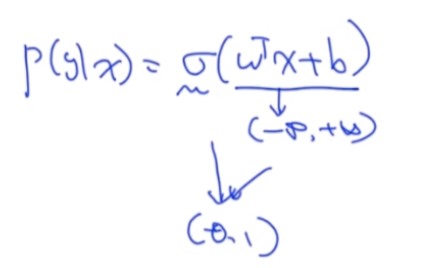 p(y|x) = σ(ωᵀx+b)
(-∞,+∞)
(0,1)